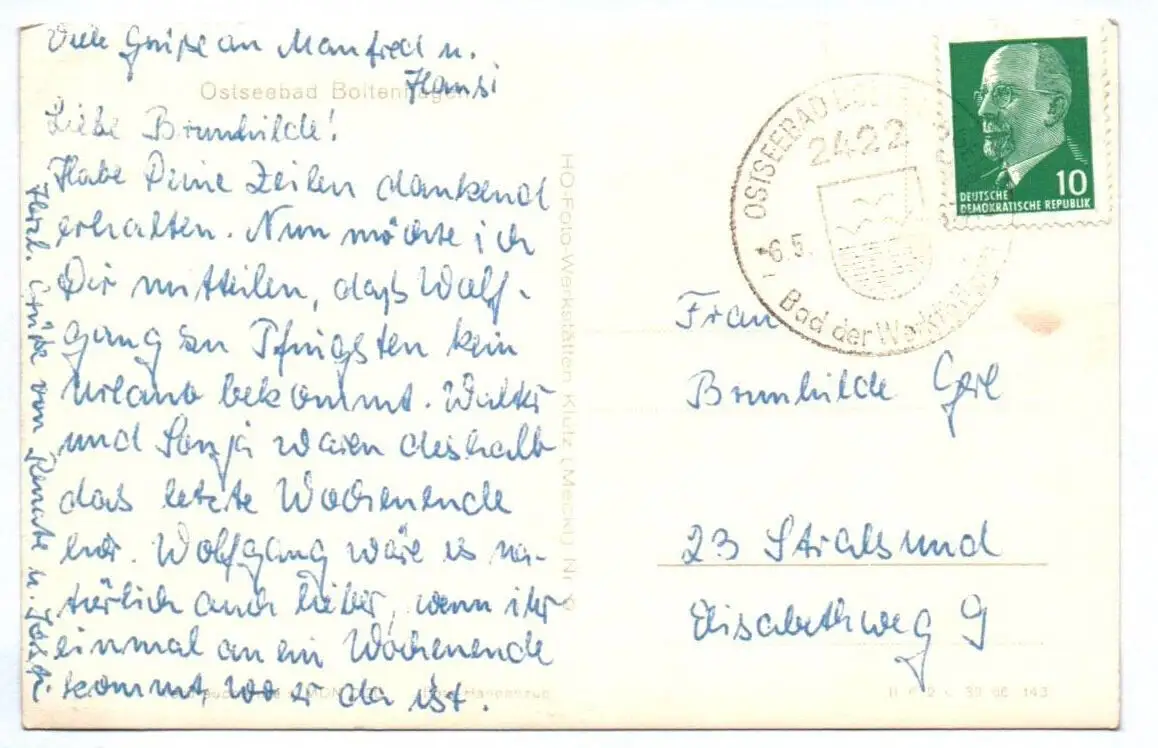 Viele Grüße an Manfred u.
Hansi
Ostseebad Boltenhagen
Liebe Brunhilde!
Habe Deine Zeilen dankend
erhalten. Nun möchte ich
Dir mitteilen, daß Wolf-
gang zu Pfingsten kein
Urlaub bekommt. Walter
und Sonja waren deshalb
das letzte Wochenende
hier. Wolfgang wäre es na-
türlich auch lieber, wenn ihr
einmal an ein Wochenende
kommt, wo er da ist.
Herzl. Grüße von Renate u.
HO-Foto-Werkstätten Klütz (Meckl) Nr. 9
OSTSEEBAD
2422
6.5.
Bad der Werktätigen
10
DEUTSCHE
DEMOKRATISCHE REPUBLIK
Frau
Brunhilde
23 Stralsund
Elisabethweg 9